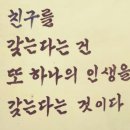 친구를
갖는다는 건
또 하나의 인생을
갖는다는 것이다